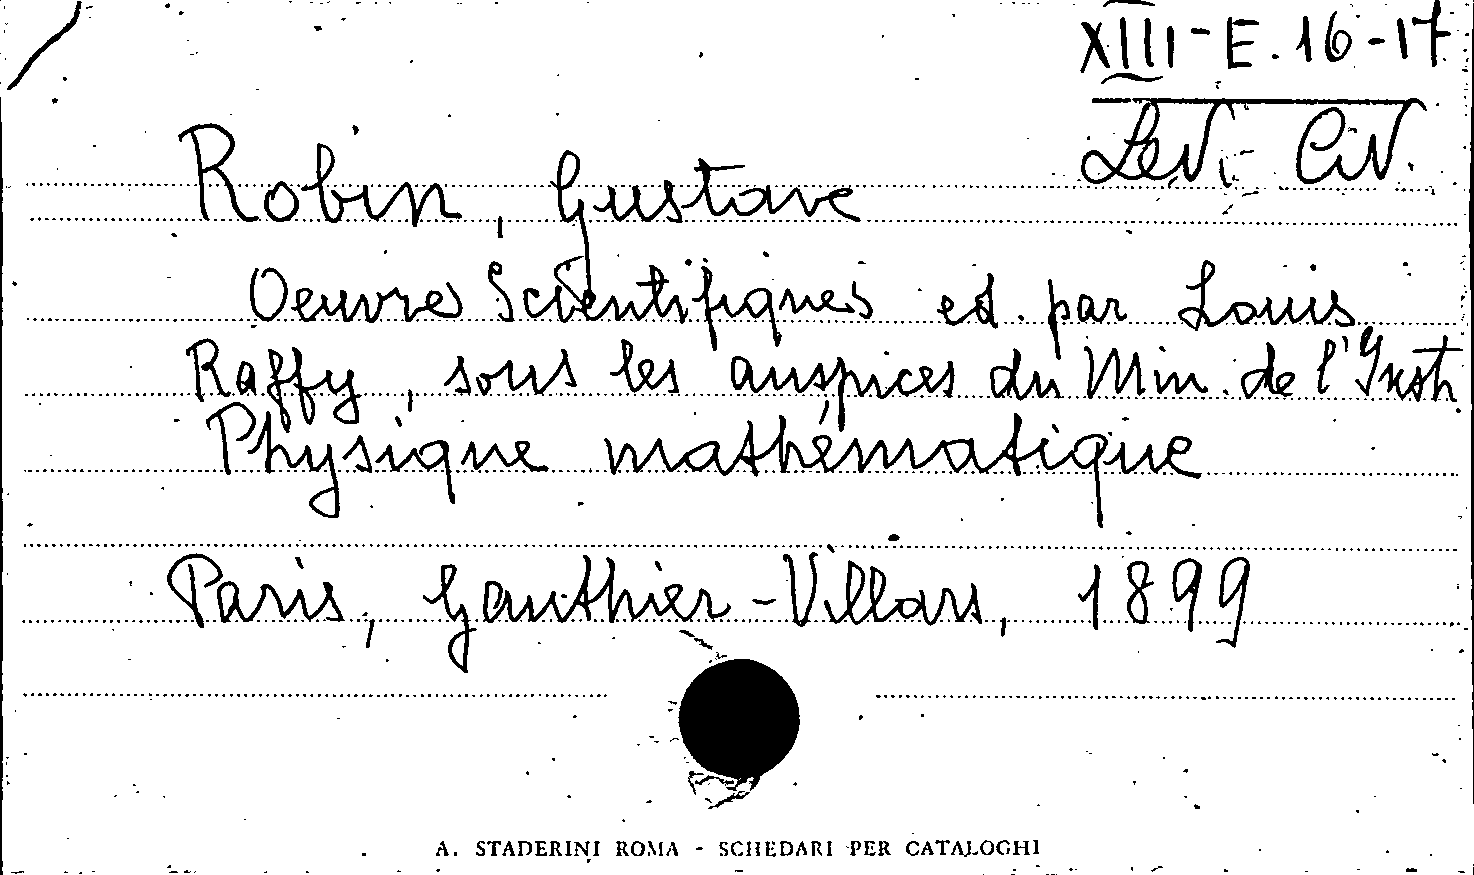 XIII-E.16-17
Levi-Civ.
Robin, Gustave
Oeuvres Scientifiques ed. par Louis
Raffy, sous les auspices du Min. de l'Instr
Physique mathématique
Paris, Gauthier-Villars, 1899
A. STADERINI ROMA - SCHEDARI PER CATALOGHI